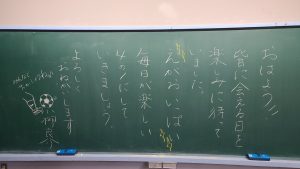 おはよう!!
皆に会える日を
楽しみに待って
いました。
えがおいっぱい
毎日が楽しい
4の1にして
いきましょう。
よろしく
おねがいします